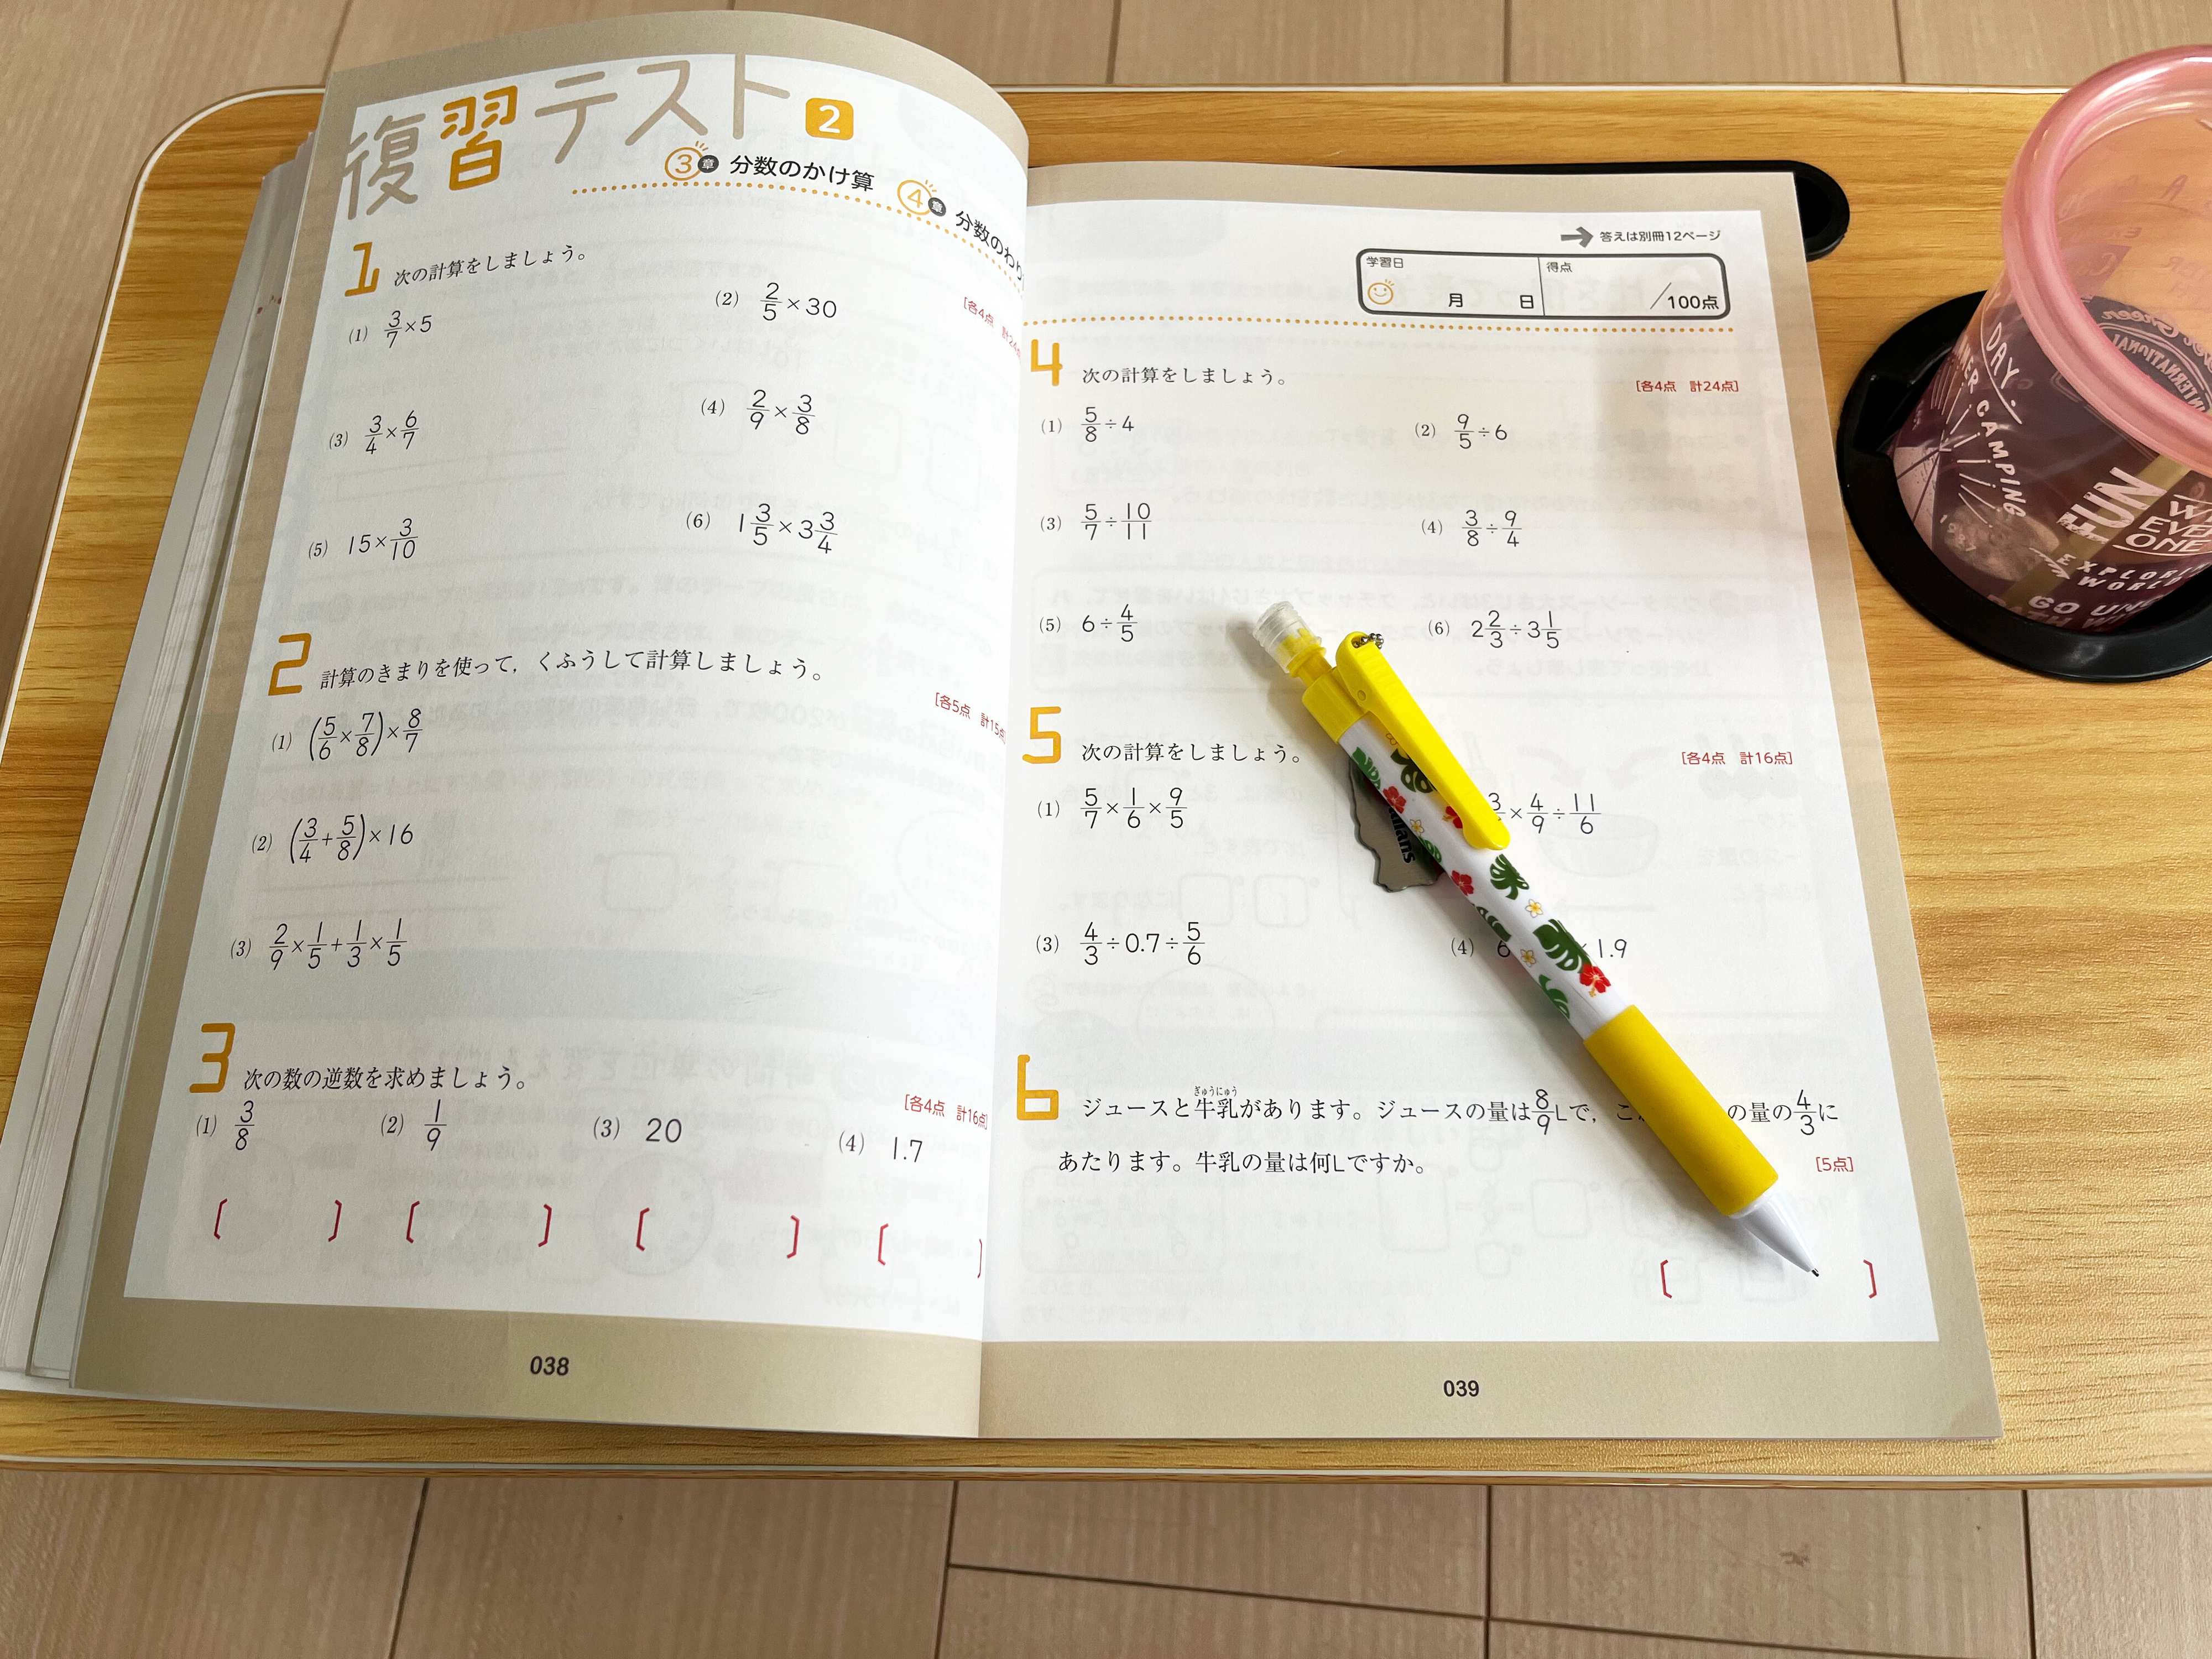 復習テスト 2
3章 分数のかけ算 4章 分数のわり
1 次の計算をしましょう。
[各4点 計24点
(1) 3/7×5
(2) 2/5×30
(3) 3/4×6/7
(4) 2/9×3/8
(5) 15×3/10
(6) 1 3/5×3 3/4
2 計算のきまりを使って，くふうして計算しましょう。
[各5点 計15点
(1) (5/6×7/8)×8/7
(2) (3/4+5/8)×16
(3) 2/9×1/5+1/3×1/5
3 次の数の逆数を求めましょう。
[各4点 計16点]
(1) 3/8 (2) 1/9 (3) 20 (4) 1.7
[ ] [ ] [ ] [ ]
038
➡ 答えは別冊12ページ
学習日 月 日 得点 /100点
4 次の計算をしましょう。
[各4点 計24点]
(1) 5/8÷4
(2) 9/5÷6
(3) 5/7÷10/11
(4) 3/8÷9/4
(5) 6÷4/5
(6) 2 2/3÷3 1/5
5 次の計算をしましょう。
[各4点 計16点]
(1) 5/7×1/6×9/5
×4/9÷11/6
(3) 4/3÷0.7÷5/6
(4) 6 ×1.9
6 ジュースと牛乳があります。ジュースの量は8/9Lで，こ の量の4/3に
ぎゅうにゅう
あたります。牛乳の量は何Lですか。
[5点]
[ ]
039
DAY.
CAMPING
FUN
EVE
ONE
GO